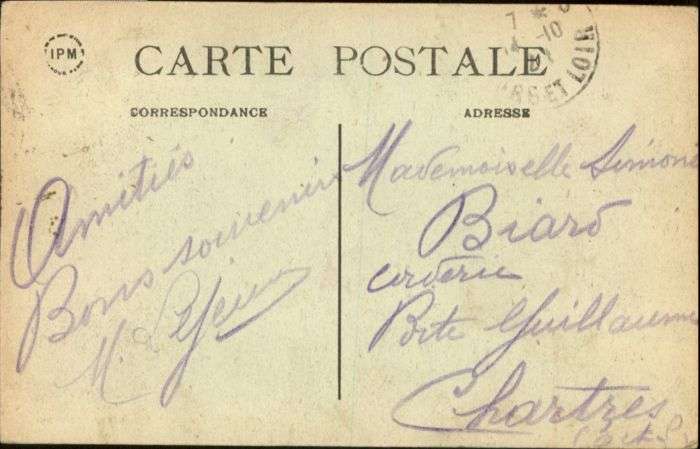 IPM
CARTE POSTALE
7 *
4-10
ET LOIR
CORRESPONDANCE
ADRESSE
Amitiés
Bons souvenirs
M
Mademoiselle Simone
Biard
corderie
Porte Guillaume
Chartres